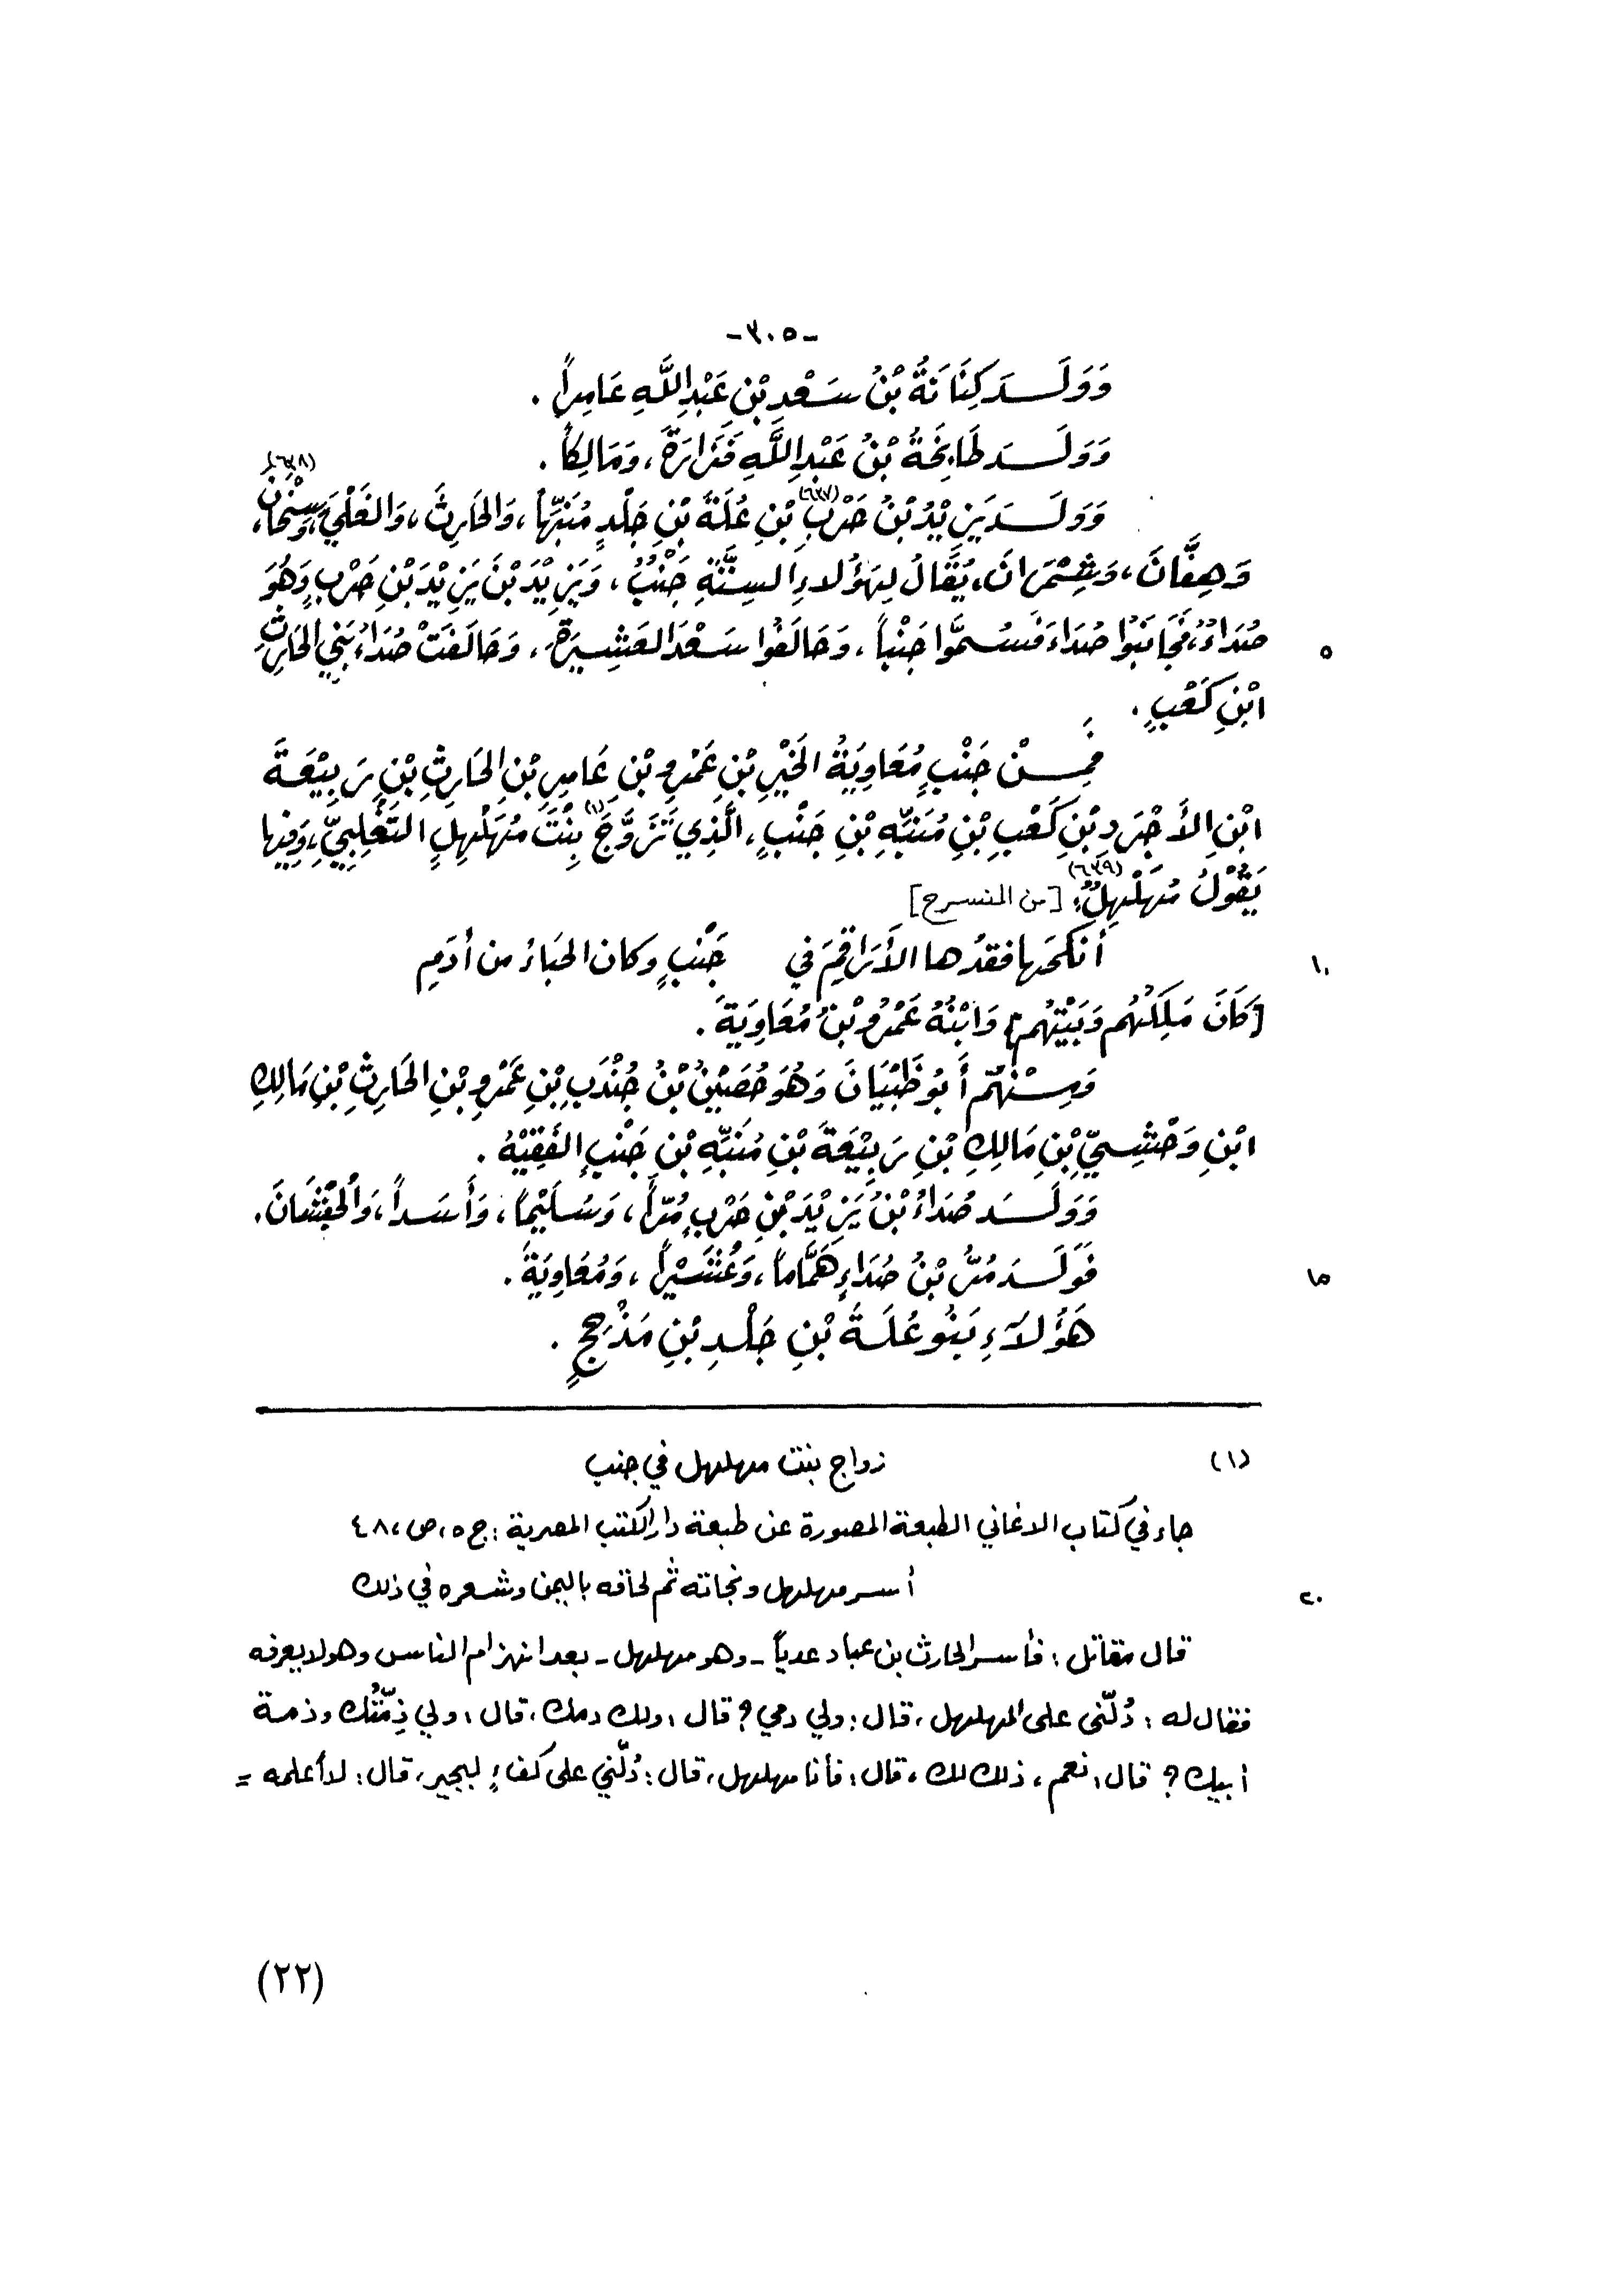 -٣٠٥-
وَوَلَـــدَ كِنَانَةُ بْنُ سَعْدِ بْنِ عَبْدِ اللَّهِ عَامِراً .
وَوَلَـــدَ طَابِخَةُ بْنُ عَبْدِ اللَّهِ فَزَارَةَ ، وَمَالِكاً .
وَوَلَـــدَ يَزِيْدُ بْنُ حَرْبِ (٦٣٧) بْنِ عُلَةَ بْنِ جَلْدٍ مُنَبِّهاً ، وَالحَارِثَ ، وَالغَلْيَ ، وَسِنْحَانَ (٦٣٨) ،
وَهِفَّانَ ، وَشِمْرَانَ ، يُقَالُ لِهَؤُلاءِ السِتَّةِ جَنْبٌ ، وَيَزِيْدَ بْنَ يَزِيْدَ بْنِ حَرْبٍ وَهُوَ
صُدَاءٌ ، فَجَانَبُوا صُدَاءَ فَسُمُّوا جَنْباً ، وَحَالَفُوا سَعْدَ العَشِيرَةِ ، وَحَالَفَتْ صُدَاءُ بَنِي الحَارِثِ
٥
ابْنِ كَعْبٍ .
فَمِـــنْ جَنْبٍ مُعَاوِيَةُ الخَيْرِ بْنِ عَمْرِو بْنِ عَامِرِ بْنِ الحَارِثِ بْنِ رَبِيْعَةَ
ابْنِ الأَجْرَدِ بْنِ كَعْبِ بْنِ مُنَبِّهِ بْنِ جَنْبٍ ، الَّذِي تَزَوَّجَ (١) بِنْتَ مُهَلْهِلٍ التَغْلِبِيِّ ، وَفِيها
يَقُوْلُ مُهَلْهِلٌ (٦٣٩) : [من المنسرح]
أنكحَها فقدُها الأَرَاقِمَ في جَنْبٍ وكان الحَبَاءُ من أَدَمِ
١٠
[كَانَ مَلِكَهُم وَبَيْتَهُم] وَابْنُهُ عَمْرُو بْنُ مُعَاوِيَةَ .
وَمِـــنْهُم أَبُو ظَبْيَانَ وَهُوَ حُصَيْنُ بْنُ جُنْدَبِ بْنِ عَمْرِو بْنِ الحَارِثِ بْنِ مَالِكِ
ابْنِ وَحْشِيِّ بْنِ مَالِكِ بْنِ رَبِيْعَةَ بْنِ مُنَبِّهِ بْنِ جَنْبٍ الفَقِيْهُ .
وَوَلَـــدَ صُدَاءُ بْنُ يَزِيْدَ بْنِ حَرْبٍ مُرّاً ، وَسُلَيْماً ، وَأَسَداً ، وَالحِفْشَانَ .
فَوَلَـــدَ مُرُّ بْنُ صُدَاءٍ هَمَّاماً ، وَعُتَيْراً ، وَمُعَاوِيَةَ .
١٥
هَؤُلاَءِ بَنُو عُلَةَ بْنِ جَلْدِ بْنِ مَذْحِجٍ .
(١) زواج بنت مهلهل في جنب
جاء في كتاب الاغاني الطبعة المصورة عن طبعة دار الكتب المصرية : ج ٥ ، ص ٤٨
أسر مهلهل ونجاته ثم لحاقه باليمن وشعره في ذلك
٢٠
قال مقاتل : فأسر الحارث بن عباد عدياً - وهو مهلهل - بعد انهزام الناس وهو لا يعرفه
فقال له : دُلّني على المهلهل ، قال : ولي دمي ؟ قال : ولك دمك ، قال : ولي ذِمّتُك وذمة
أبيك ؟ قال : نعم ، ذلك لك ، قال : فأنا مهلهل ، قال : دُلّني على كفءٍ لبجير ، قال : لا أعلمه =
(٢٢)